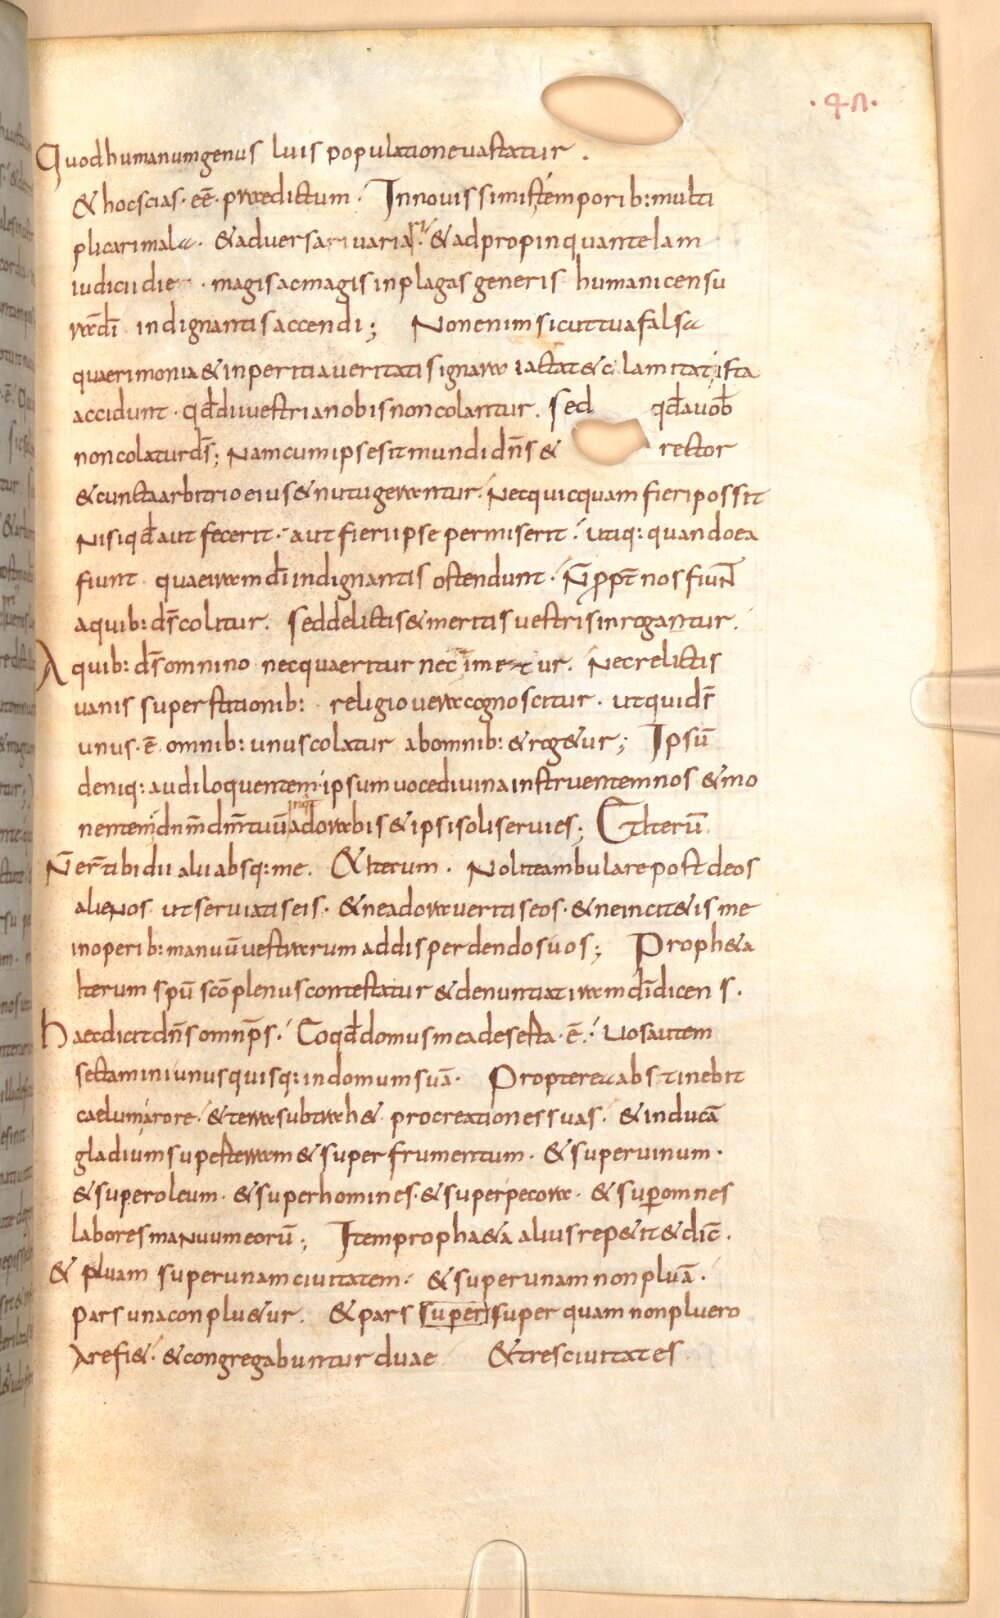 ·47·
Quodhumanumgenus luis populationeuastatur .
& hocscias · eē · praedictum · Innouissimistemporib: multi
plicarimala · &aduersarıuaria · &adpropinquantelam
iudiciidie · magisacmagisinplagasgeneris humanicensu
radī indignantisaccendi ; Nonenimsicuttuafalsa
quaerimonia&inperitiaueritatisignara iactat&clamitatista
accidunt · qđdiiuestrianobisnoncolantur . sed qđauob
noncolaturds̄ ; Namcumipsesitmundidn̄s & rector
&cunctaarbitrioeius&nutugerantur · Necquicquamfieripossit
Nisiqđautfecerit · autfieriipsepermiserit · utiq: quandoea
fiunt quaeiramdīindignantis ostendunt · N̄ppt nosfiunt
aquib: ds̄colitur . seddelictis&meritisuestrisinrogantur .
Aquib: ds̄omnino necquaeriturnectimetur . Necrelictis
uanis superstitionib: religioueracognoscitur · utquids̄
unus · ē omnib: unuscolatur abomnib: &rog&ur ; Ipsū
deniq: audiloquentem · ipsumuocediuinainstruentemnos &mo
nentem dn̄m dm̄ tuū inq adorabis&ipsisoliseruies ; &Iterū
N̄ert̄tibidii aliiabsq: me . &Iterum . Noliteambularepostdeos
alieNos utseruiatiseis · &neadoraueritiseos · &neincit&isme
inoperib: manuūuestrarumaddisperdendosuos ; Proph&a
Iterum spū scōplenuscontestatur &denuntiatiramdīdicens .
haecdicitdn̄somnp̄s · Eoqđdomusmeadeserta · ē · Uosautem
sectaminiunusquisq: indomumsuā · Propterea abstinebit
caelumarore · &terrasubtrah& procreationessuas · &inducā
gladiumsuperterram&superfrumentum · &superuinum ·
&superoleum · &superhomines · &superpecora · &supomnes
laboresmaNuumeorū ; Itemproph&a aliusrep&it&dic̄ .
& pluam superunamciuitatem · &superunamnonpluā ·
Parsunaconplu&ur . &pars super super quamnonpluero
Arefi& · &congregabunturduae &tresciuitates .